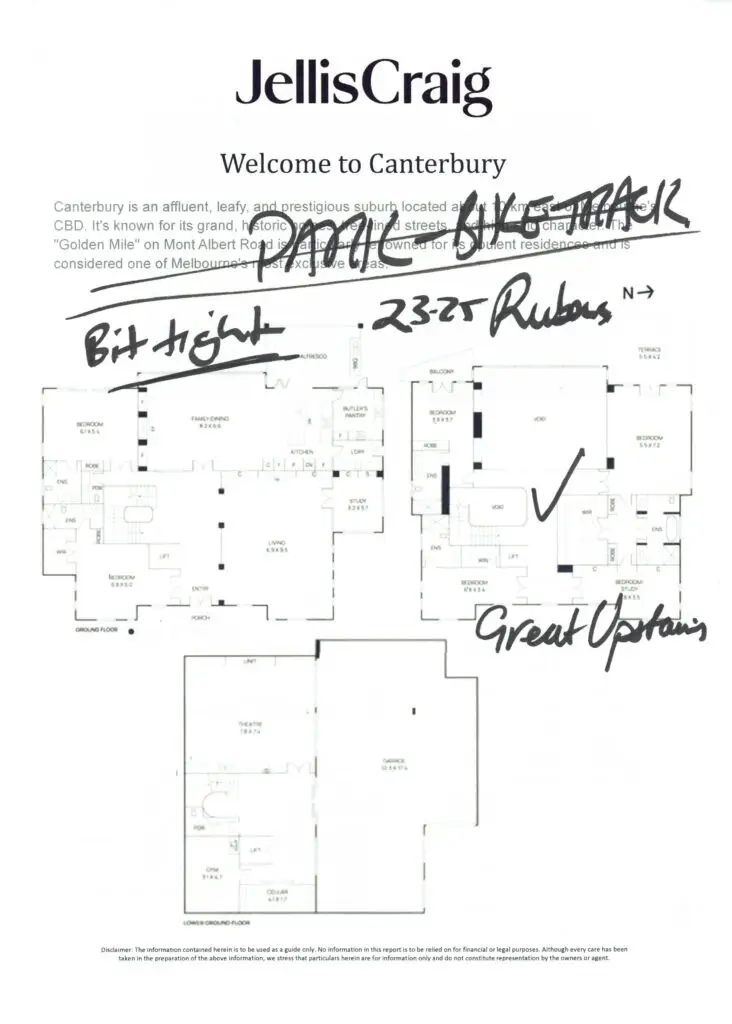 JellisCraig
Welcome to Canterbury
Canterbury is an affluent, leafy, and prestigious suburb located about 10 km east of Melbourne's
CBD. It's known for its grand, historic homes, tree-lined streets, and high-end character. The
"Golden Mile" on Mont Albert Road is particularly renowned for its opulent residences and is
considered one of Melbourne's most exclusive areas.
PARK - BIKE TRACK
23-25
N→
Bit tight
ALFRESCO
BBQ
TERRACE
5.5 X 4.2
BALCONY
BEDROOM
FAMILY/DINING
BUTLER'S
PANTRY
KITCHEN
L'DRY
ROBE
ENS
PDR
ENS
ROBE
WIR
LIFT
BEDROOM
ENTRY
PORCH
LIVING
STUDY
GROUND FLOOR
BEDROOM
VOID
BEDROOM
ROBE
ENS
VOID
WIR
ROBE
ENS
ENS
WIR
LIFT
ROBE
BEDROOM
BEDROOM/
STUDY
Great Upstairs
UNIT
THEATRE
GARAGE
PDR
LIFT
GYM
CELLAR
LOWER GROUND FLOOR
Disclaimer: The information contained herein is to be used as a guide only. No information in this report is to be relied on for financial or legal purposes. Although every care has been
taken in the preparation of the above information, we stress that particulars herein are for information only and do not constitute representation by the owners or agent.